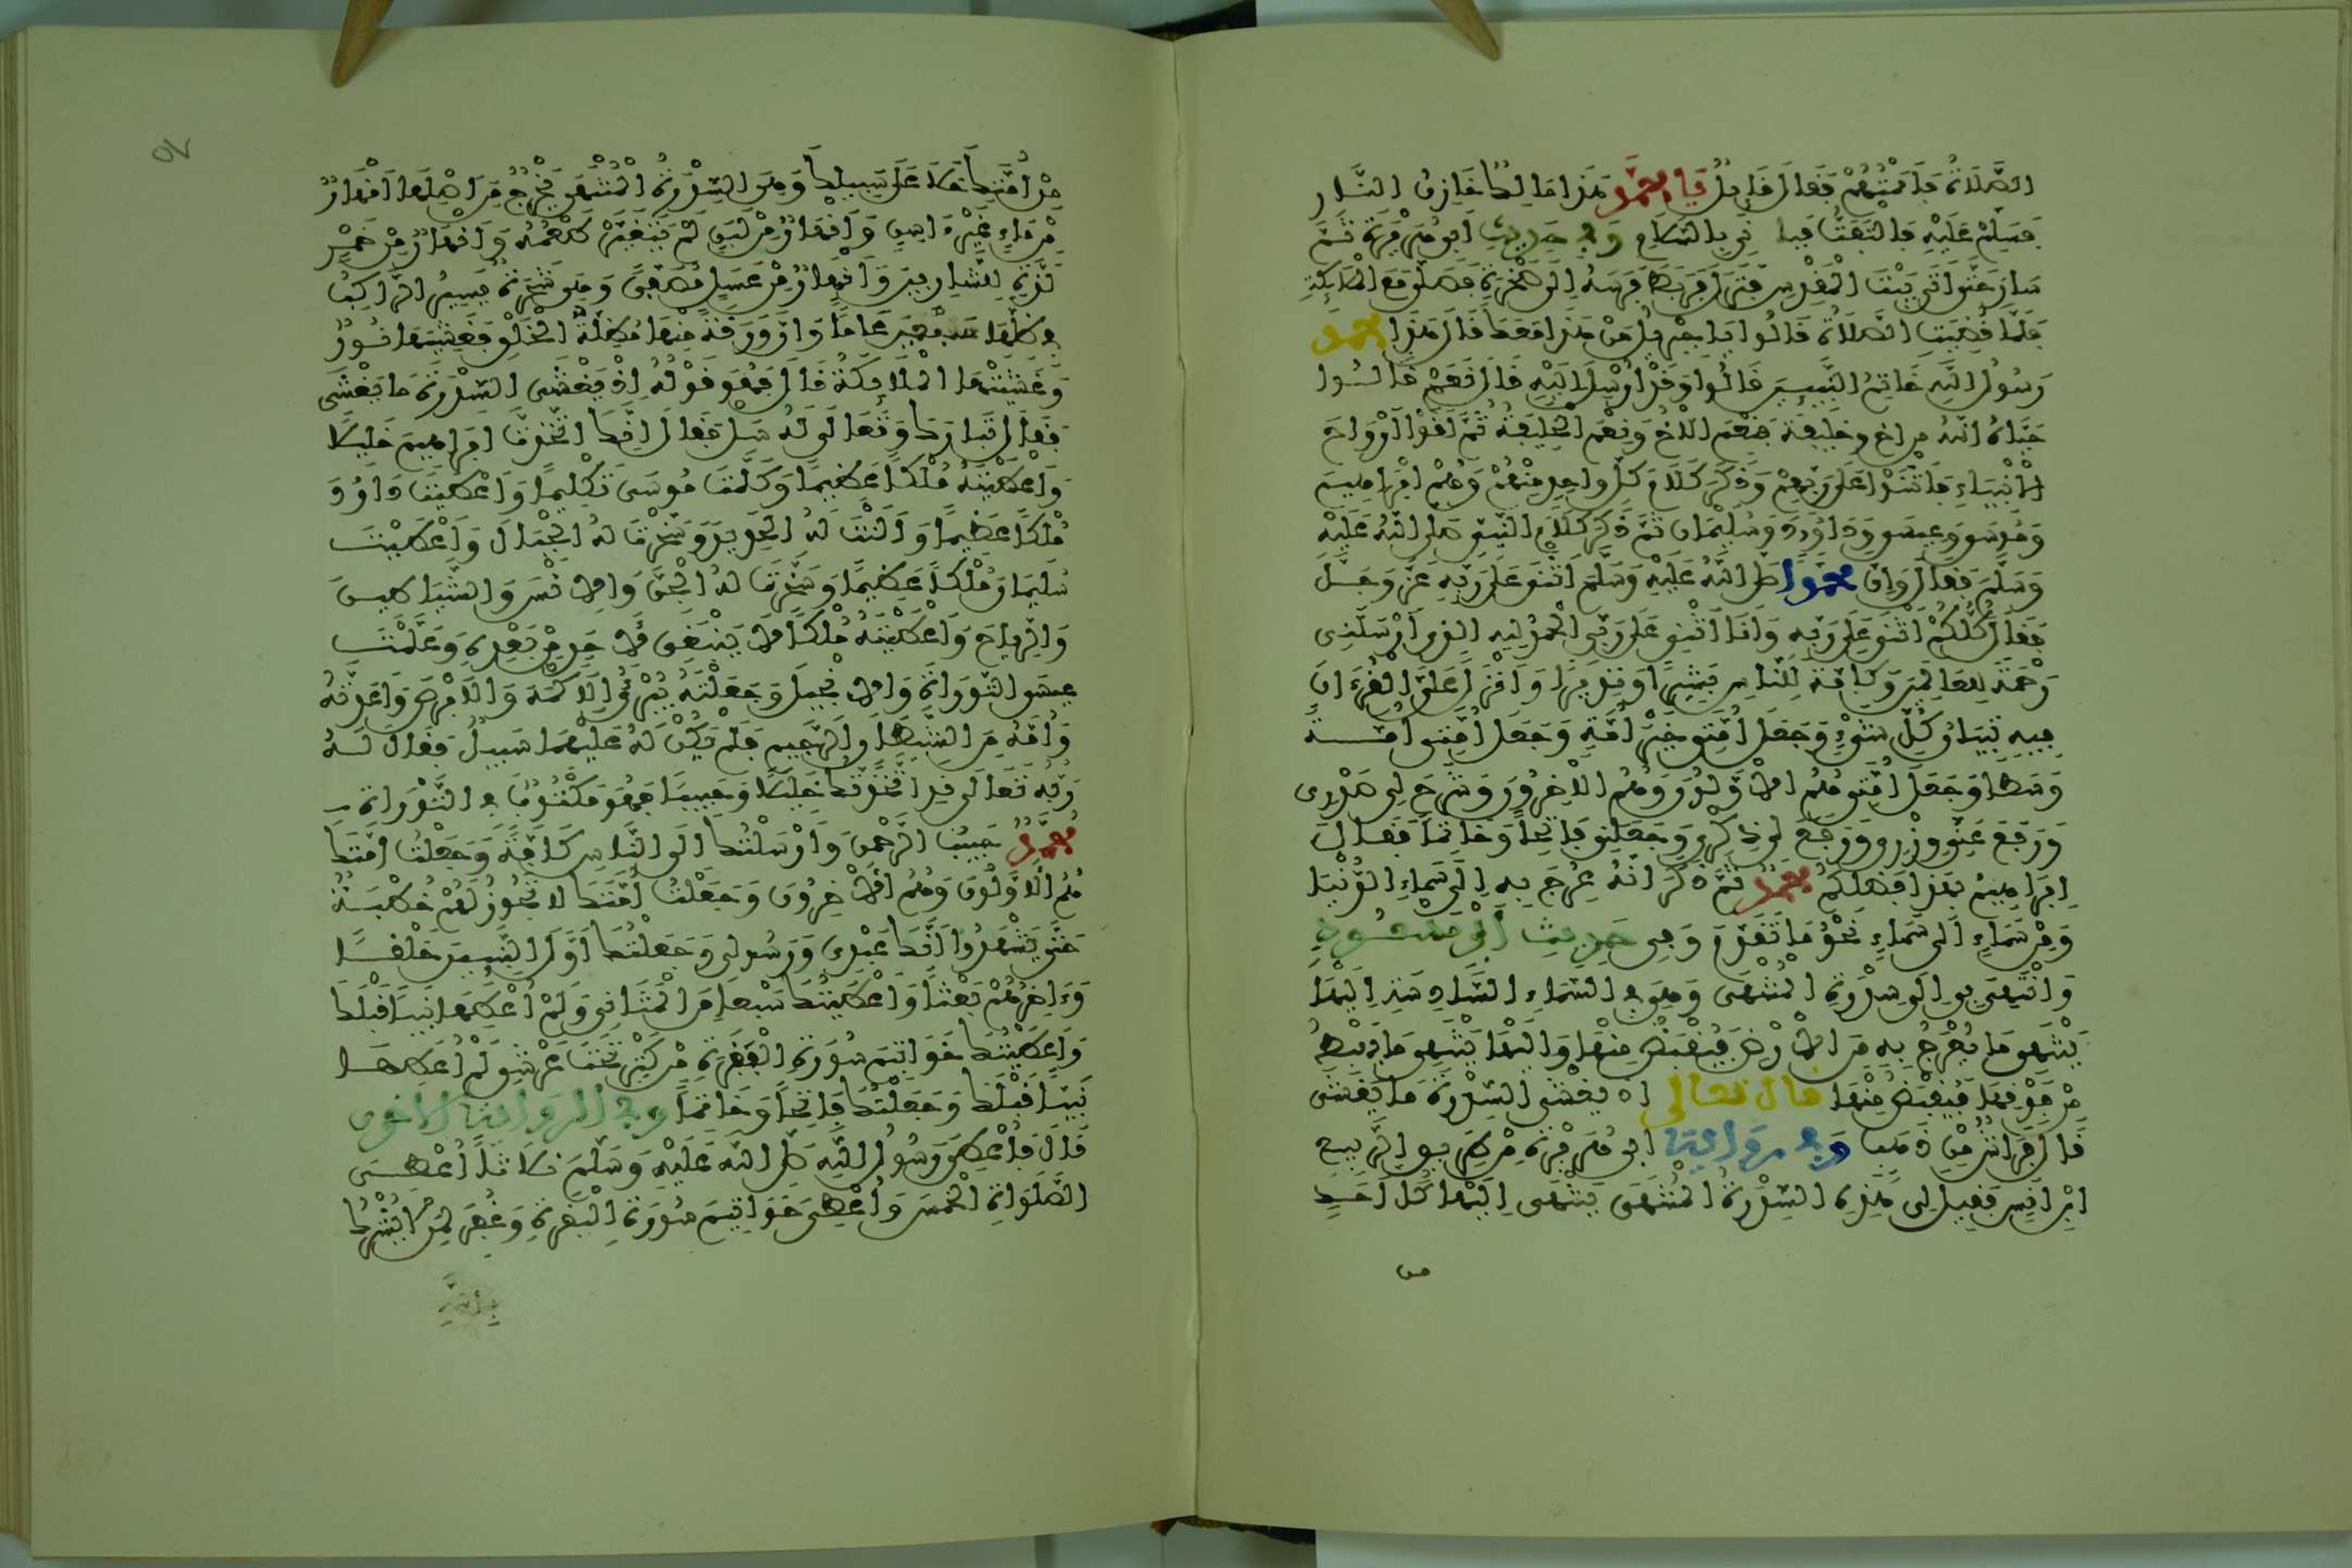 الصَّلَاةُ فَأَمَمْتُهُمْ فَقَالَ قَائِلٌ يَا مُحَمَّدُ هَذَا مَالِكٌ خَازِنُ النَّارِ
فَسَلِّمْ عَلَيْهِ فَالْتَفَتُّ فَبَدَأَنِي بِالسَّلَامِ وَفِي حَدِيثِ أَبِي هُرَيْرَةَ ثُمَّ
سَارَ حَتَّى أَتَى بَيْتَ الْمَقْدِسِ فَنَزَلَ فَرَبَطَ فَرَسَهُ إِلَى صَخْرَةٍ فَصَلَّى مَعَ الْمَلَائِكَةِ
فَلَمَّا قُضِيَتِ الصَّلَاةُ قَالُوا يَا جِبْرِيلُ مَنْ هَذَا مَعَكَ قَالَ هَذَا مُحَمَّدٌ
رَسُولُ اللَّهِ خَاتِمُ النَّبِيِّينَ قَالُوا وَقَدْ أُرْسِلَ إِلَيْهِ قَالَ نَعَمْ قَالُوا
حَيَّاهُ اللَّهُ مِنْ أَخٍ وَخَلِيفَةٍ فَنِعْمَ الْأَخُ وَنِعْمَ الْخَلِيفَةُ ثُمَّ لَقَوْا أَرْوَاحَ
الْأَنْبِيَاءِ فَأَثْنَوْا عَلَى رَبِّهِمْ وَذَكَرَ كَلَامَ كُلِّ وَاحِدٍ مِنْهُمْ وَهُمْ إِبْرَاهِيمُ
وَمُوسَى وَعِيسَى وَدَاوُدُ وَسُلَيْمَانُ ثُمَّ ذَكَرَ كَلَامَ النَّبِيِّ صَلَّى اللَّهُ عَلَيْهِ
وَسَلَّمَ فَقَالَ وَإِنَّ مُحَمَّدًا صَلَّى اللَّهُ عَلَيْهِ وَسَلَّمَ أَثْنَى عَلَى رَبِّهِ عَزَّ وَجَلَّ
فَقَالَ كُلُّكُمْ أَثْنَى عَلَى رَبِّهِ وَأَنَا أُثْنِي عَلَى رَبِّي الْحَمْدُ لِلَّهِ الَّذِي أَرْسَلَنِي
رَحْمَةً لِلْعَالَمِينَ وَكَافَّةً لِلنَّاسِ بَشِيرًا وَنَذِيرًا وَأَنْزَلَ عَلَيَّ الْقُرْءَانَ
فِيهِ تِبْيَانُ كُلِّ شَيْءٍ وَجَعَلَ أُمَّتِي خَيْرَ أُمَّةٍ وَجَعَلَ أُمَّتِي أُمَّةً
وَسَطًا وَجَعَلَ أُمَّتِي هُمُ الْأَوَّلُونَ وَهُمُ الْآخِرُونَ وَشَرَحَ لِي صَدْرِي
وَوَضَعَ عَنِّي وِزْرِي وَرَفَعَ لِي ذِكْرِي وَجَعَلَنِي فَاتِحًا وَخَاتِمًا فَقَالَ
إِبْرَاهِيمُ بِهَذَا فَضَلَكُمْ مُحَمَّدٌ ثُمَّ ذَكَرَ أَنَّهُ عُرِجَ بِهِ إِلَى سَمَاءِ الدُّنْيَا
وَمِنْ سَمَاءٍ إِلَى سَمَاءٍ نَحْوَ مَا تَقَدَّمَ وَفِي حَدِيثِ ابْنِ مَسْعُودٍ
وَانْتُهِيَ بِي إِلَى سِدْرَةِ الْمُنْتَهَى وَهِيَ فِي السَّمَاءِ السَّادِسَةِ إِلَيْهَا
يَنْتَهِي مَا يُعْرَجُ بِهِ مِنَ الْأَرْضِ فَيُقْبَضُ مِنْهَا وَإِلَيْهَا يَنْتَهِي مَا يَهْبِطُ
مِنْ فَوْقِهَا فَيُقْبَضُ مِنْهَا قَالَ تَعَالَى إِذْ يَغْشَى السِّدْرَةَ مَا يَغْشَى
قَالَ فَرَاشٌ مِنْ ذَهَبٍ وَفِي رِوَايَةِ أَبِي هُرَيْرَةَ مِنْ طَرِيقِ الرَّبِيعِ
ابْنِ أَنَسٍ فَقِيلَ لِي هَذِهِ السِّدْرَةُ الْمُنْتَهَى يَنْتَهِي إِلَيْهَا كُلُّ أَحَدٍ
من
مِنْ أُمَّتِكَ خَلَا عَلَى سَبِيلِكَ وَهِيَ السِّدْرَةُ الْمُنْتَهَى يَخْرُجُ مِنْ أَصْلِهَا أَنْهَارٌ
مِنْ مَاءٍ غَيْرِ ءَاسِنٍ وَأَنْهَارٌ مِنْ لَبَنٍ لَمْ يَتَغَيَّرْ طَعْمُهُ وَأَنْهَارٌ مِنْ خَمْرٍ
لَذَّةٍ لِلشَّارِبِينَ وَأَنْهَارٌ مِنْ عَسَلٍ مُصَفًّى وَهِيَ شَجَرَةٌ يَسِيرُ الرَّاكِبُ
فِي ظِلِّهَا سَبْعِينَ عَامًا وَأَنَّ وَرَقَةً مِنْهَا مُظِلَّةُ الْخَلْقِ فَغَشِيَهَا نُورٌ
وَغَشِيَتْهَا الْمَلَائِكَةُ قَالَ فَهُوَ قَوْلُهُ إِذْ يَغْشَى السِّدْرَةَ مَا يَغْشَى
فَقَالَ تَبَارَكَ وَتَعَالَى لَهُ سَلْ فَقَالَ إِنَّكَ اتَّخَذْتَ إِبْرَاهِيمَ خَلِيلًا
وَأَعْطَيْتَهُ مُلْكًا عَظِيمًا وَكَلَّمْتَ مُوسَى تَكْلِيمًا وَأَعْطَيْتَ دَاوُدَ
مُلْكًا عَظِيمًا وَأَلَنْتَ لَهُ الْحَدِيدَ وَسَخَّرْتَ لَهُ الْجِبَالَ وَأَعْطَيْتَ
سُلَيْمَانَ مُلْكًا عَظِيمًا وَسَخَّرْتَ لَهُ الْجِنَّ وَالْإِنْسَ وَالشَّيَاطِينَ
وَالرِّيَاحَ وَأَعْطَيْتَهُ مُلْكًا لَا يَنْبَغِي لِأَحَدٍ مِنْ بَعْدِهِ وَعَلَّمْتَ
عِيسَى التَّوْرَاةَ وَالْإِنْجِيلَ وَجَعَلْتَهُ يُبْرِئُ الْأَكْمَهَ وَالْأَبْرَصَ وَأَعَذْتَهُ
وَأُمَّهُ مِنَ الشَّيْطَانِ الرَّجِيمِ فَلَمْ يَكُنْ لَهُ عَلَيْهِمَا سَبِيلٌ فَقَالَ لَهُ
رَبُّهُ تَعَالَى قَدِ اتَّخَذْتُكَ خَلِيلًا وَحَبِيبًا فَهُوَ مَكْتُوبٌ فِي التَّوْرَاةِ
مُحَمَّدٌ حَبِيبُ الرَّحْمَنِ وَأَرْسَلْتُكَ إِلَى النَّاسِ كَافَّةً وَجَعَلْتُ أُمَّتَكَ
هُمُ الْأَوَّلُونَ وَهُمُ الْآخِرُونَ وَجَعَلْتُ أُمَّتَكَ لَا تَجُوزُ لَهُمْ خُطْبَةٌ
حَتَّى يَشْهَدُوا أَنَّكَ عَبْدِي وَرَسُولِي وَجَعَلْتُكَ أَوَّلَ النَّبِيِّينَ خَلْقًا
وَءَاخِرَهُمْ بَعْثًا وَأَعْطَيْتُكَ سَبْعًا مِنَ الْمَثَانِي وَلَمْ أُعْطِهَا نَبِيًّا قَبْلَكَ
وَأَعْطَيْتُكَ خَوَاتِيمَ سُورَةِ الْبَقَرَةِ مِنْ كَنْزٍ تَحْتَ عَرْشِي لَمْ أُعْطِهَا
نَبِيًّا قَبْلَكَ وَجَعَلْتُكَ فَاتِحًا وَخَاتِمًا وَفِي الرِّوَايَةِ الْأُخْرَى
قَالَ فَأُعْطِيَ رَسُولُ اللَّهِ صَلَّى اللَّهُ عَلَيْهِ وَسَلَّمَ ثَلَاثًا أُعْطِيَ
الصَّلَوَاتِ الْخَمْسَ وَأُعْطِيَ خَوَاتِيمَ سُورَةِ الْبَقَرَةِ وَغُفِرَ لِمَنْ لَا يُشْرِكُ
بالله